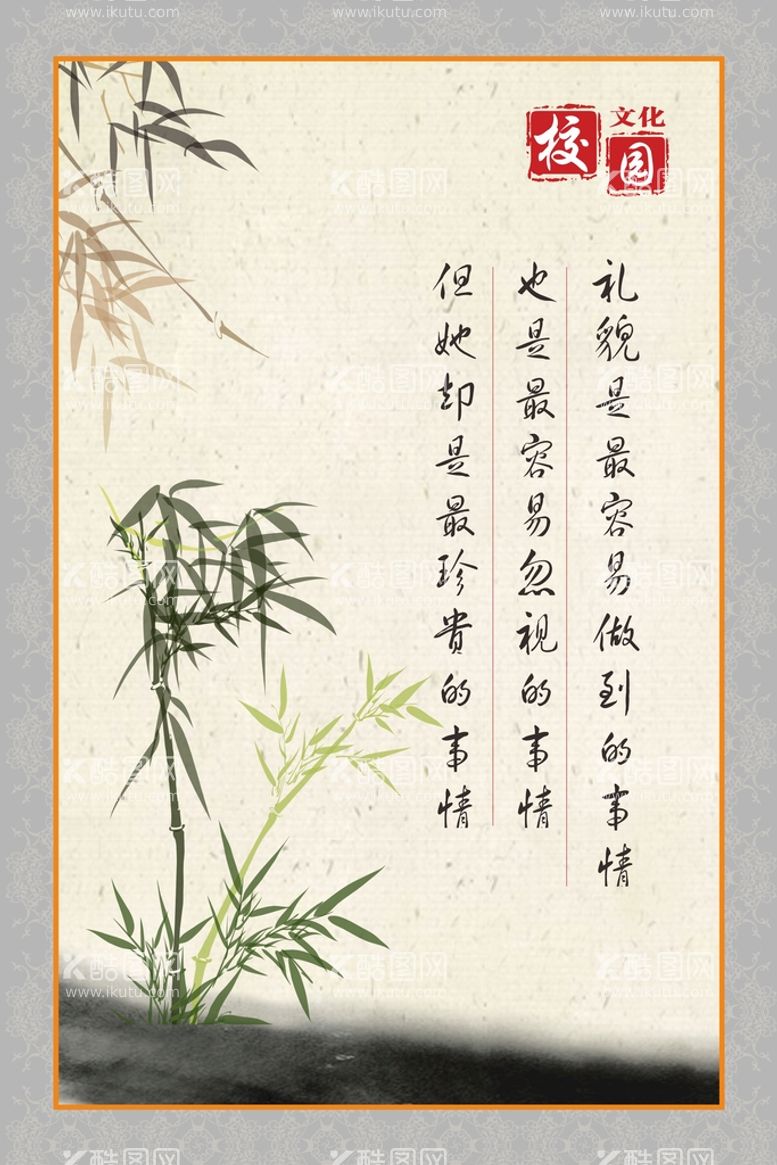 校园
文化
礼貌是最容易做到的事情
也是最容易忽视的事情
但她却是最珍贵的事情
酷图网
www.ikutu.com